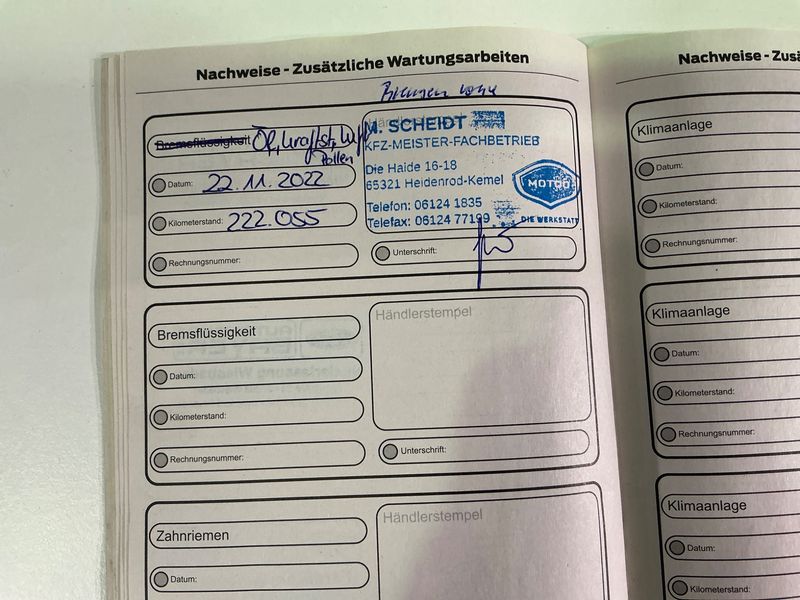 Nachweise - Zusätzliche Wartungsarbeiten
Bremsen
Bremsflüssigkeit Öl, Kraftst, Luft
Pollen
Datum: 22.11.2022
Kilometerstand: 222.055
Rechnungsnummer:
Händlerstempel
M. SCHEIDT
KFZ-MEISTER-FACHBETRIEB
Die Haide 16-18
65321 Heidenrod-Kemel
Telefon: 06124 1835
Telefax: 06124 77199
MOTOO
DIE WERKSTATT
Unterschrift:
Bremsflüssigkeit
Datum:
Kilometerstand:
Rechnungsnummer:
Händlerstempel
Unterschrift:
Zahnriemen
Datum:
Händlerstempel
Nachweise - Zusä
Klimaanlage
Datum:
Kilometerstand:
Rechnungsnummer:
Klimaanlage
Datum:
Kilometerstand:
Rechnungsnummer:
Klimaanlage
Datum:
Kilometerstand: